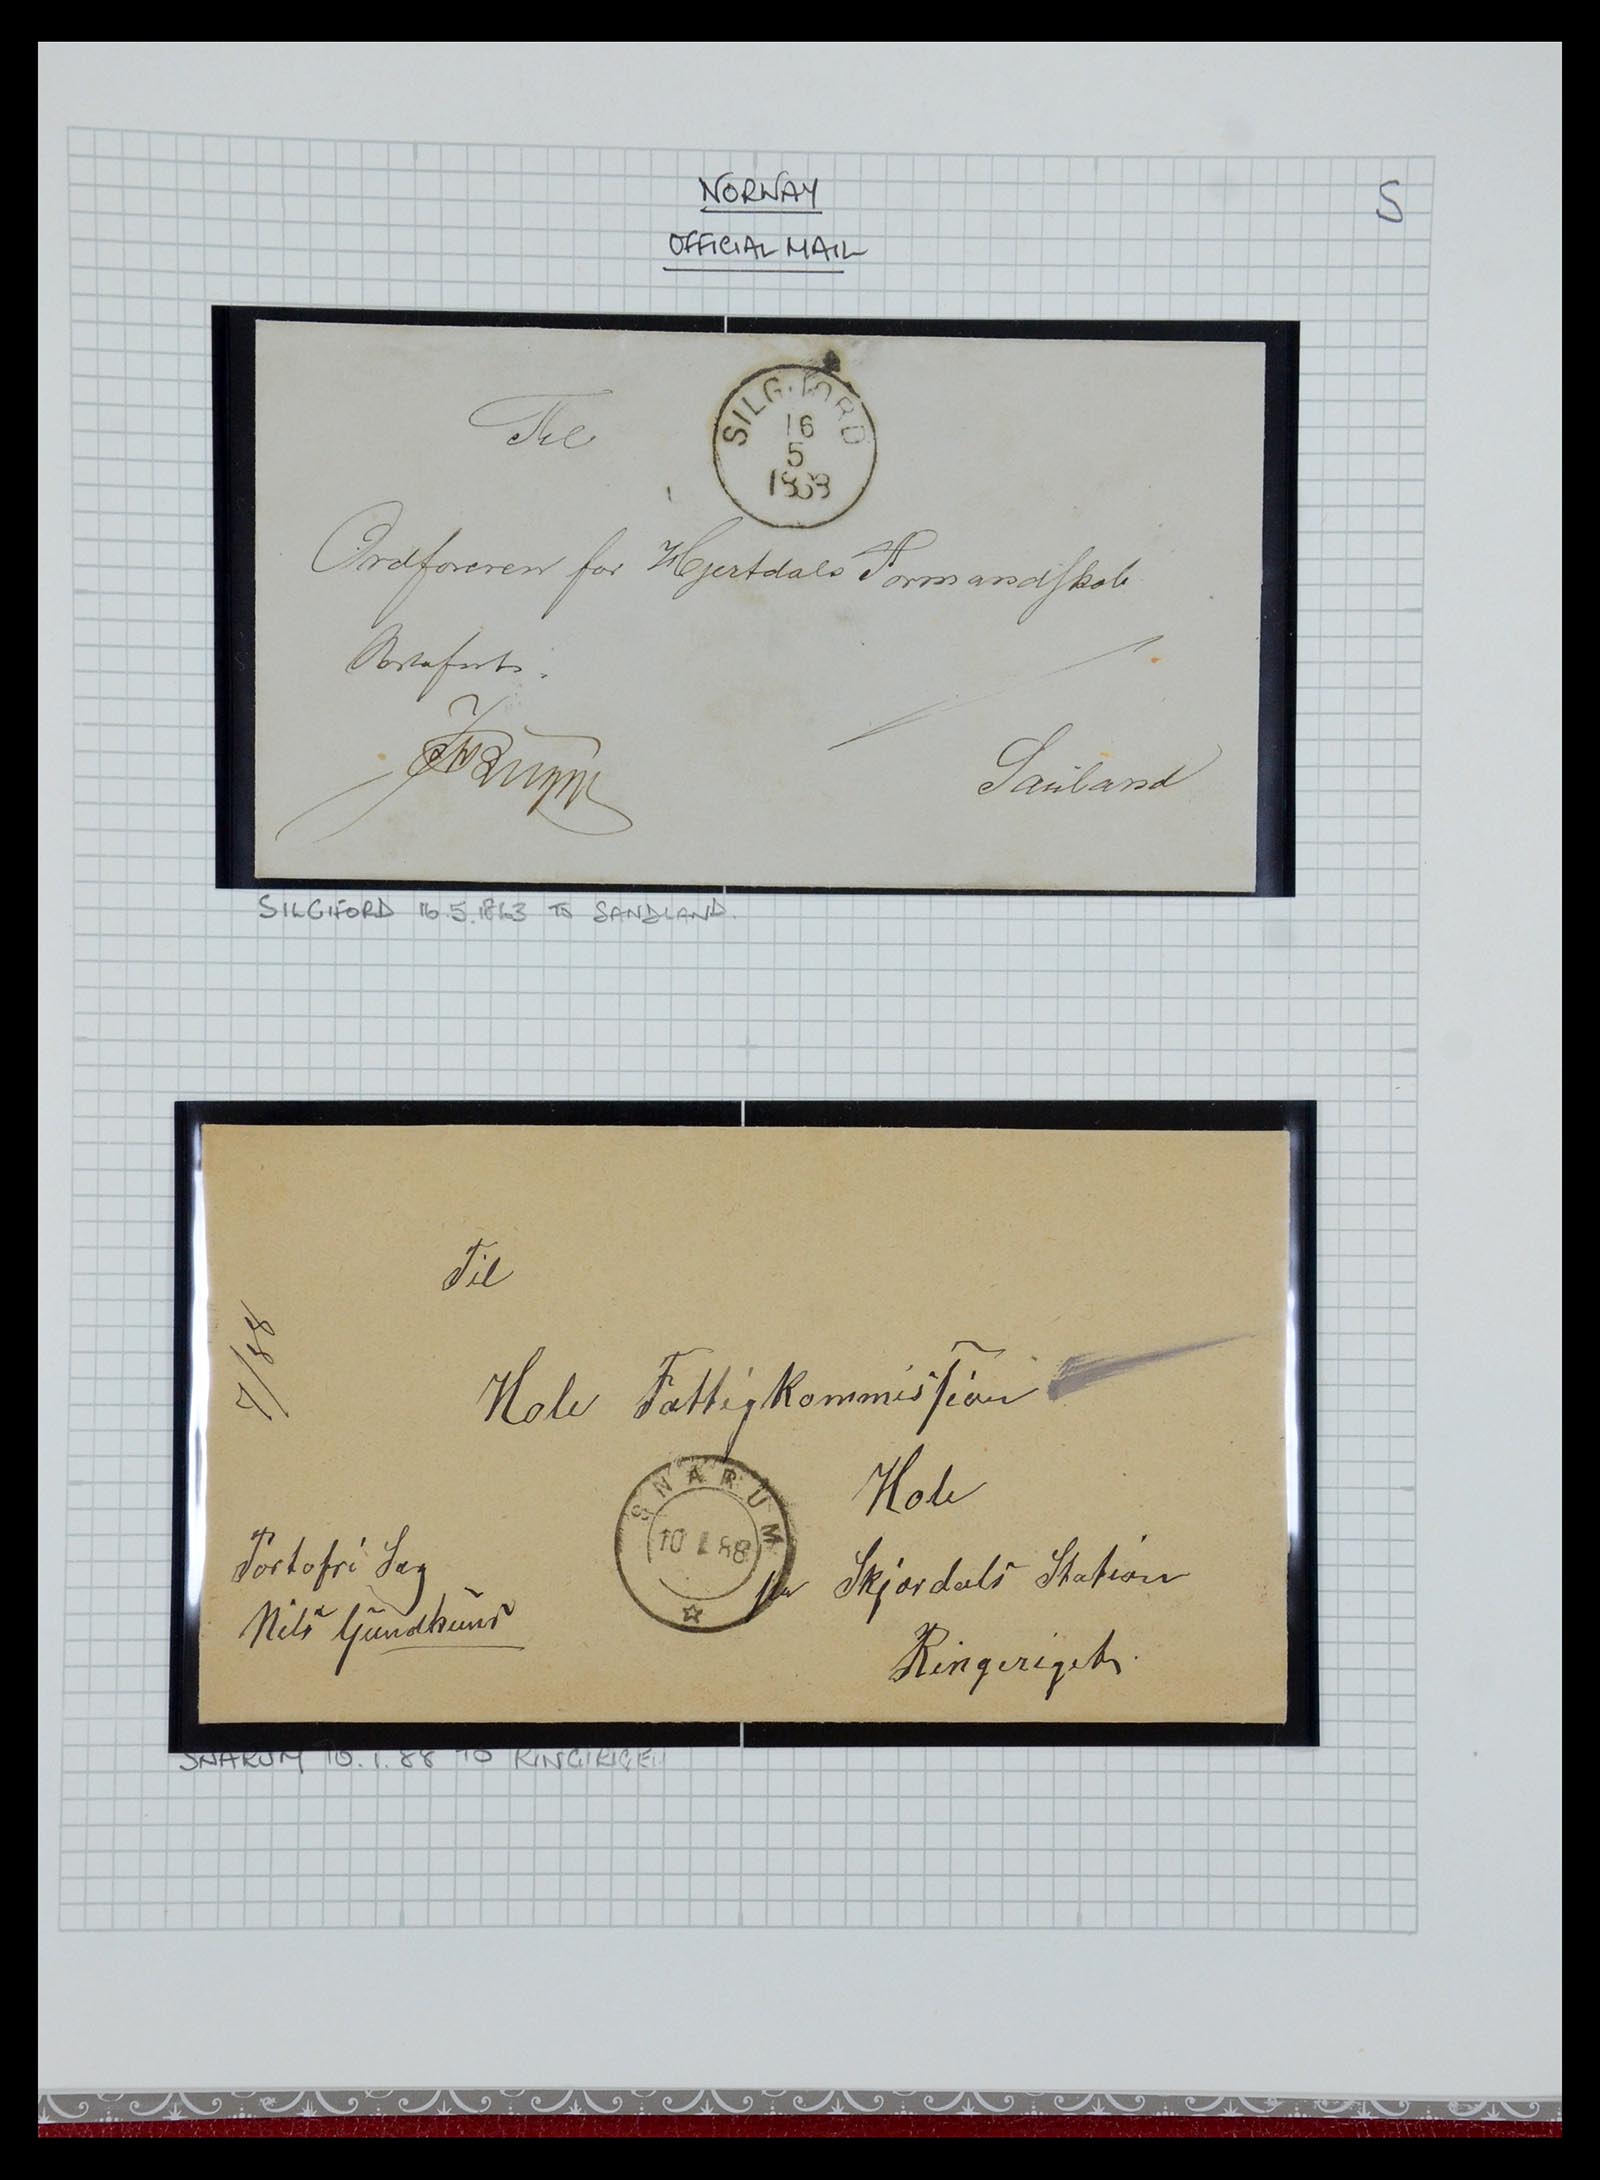 NORWAY
S
OFFICIAL MAIL
Til
SILGJORD
16
5
1863
Ordforeren for Hjertdals Formandskab
Sauland
SILGIFORD 16.5.1863 TO SANDLAND.
Til
7/88
Hole Fattigkommission
SNARUM
10 1 88
Hole
Portofri Sag
pr Skjærdals Station
Nils
Ringeriget.
SNARUM 10.1.88 TO RINGIRIGET